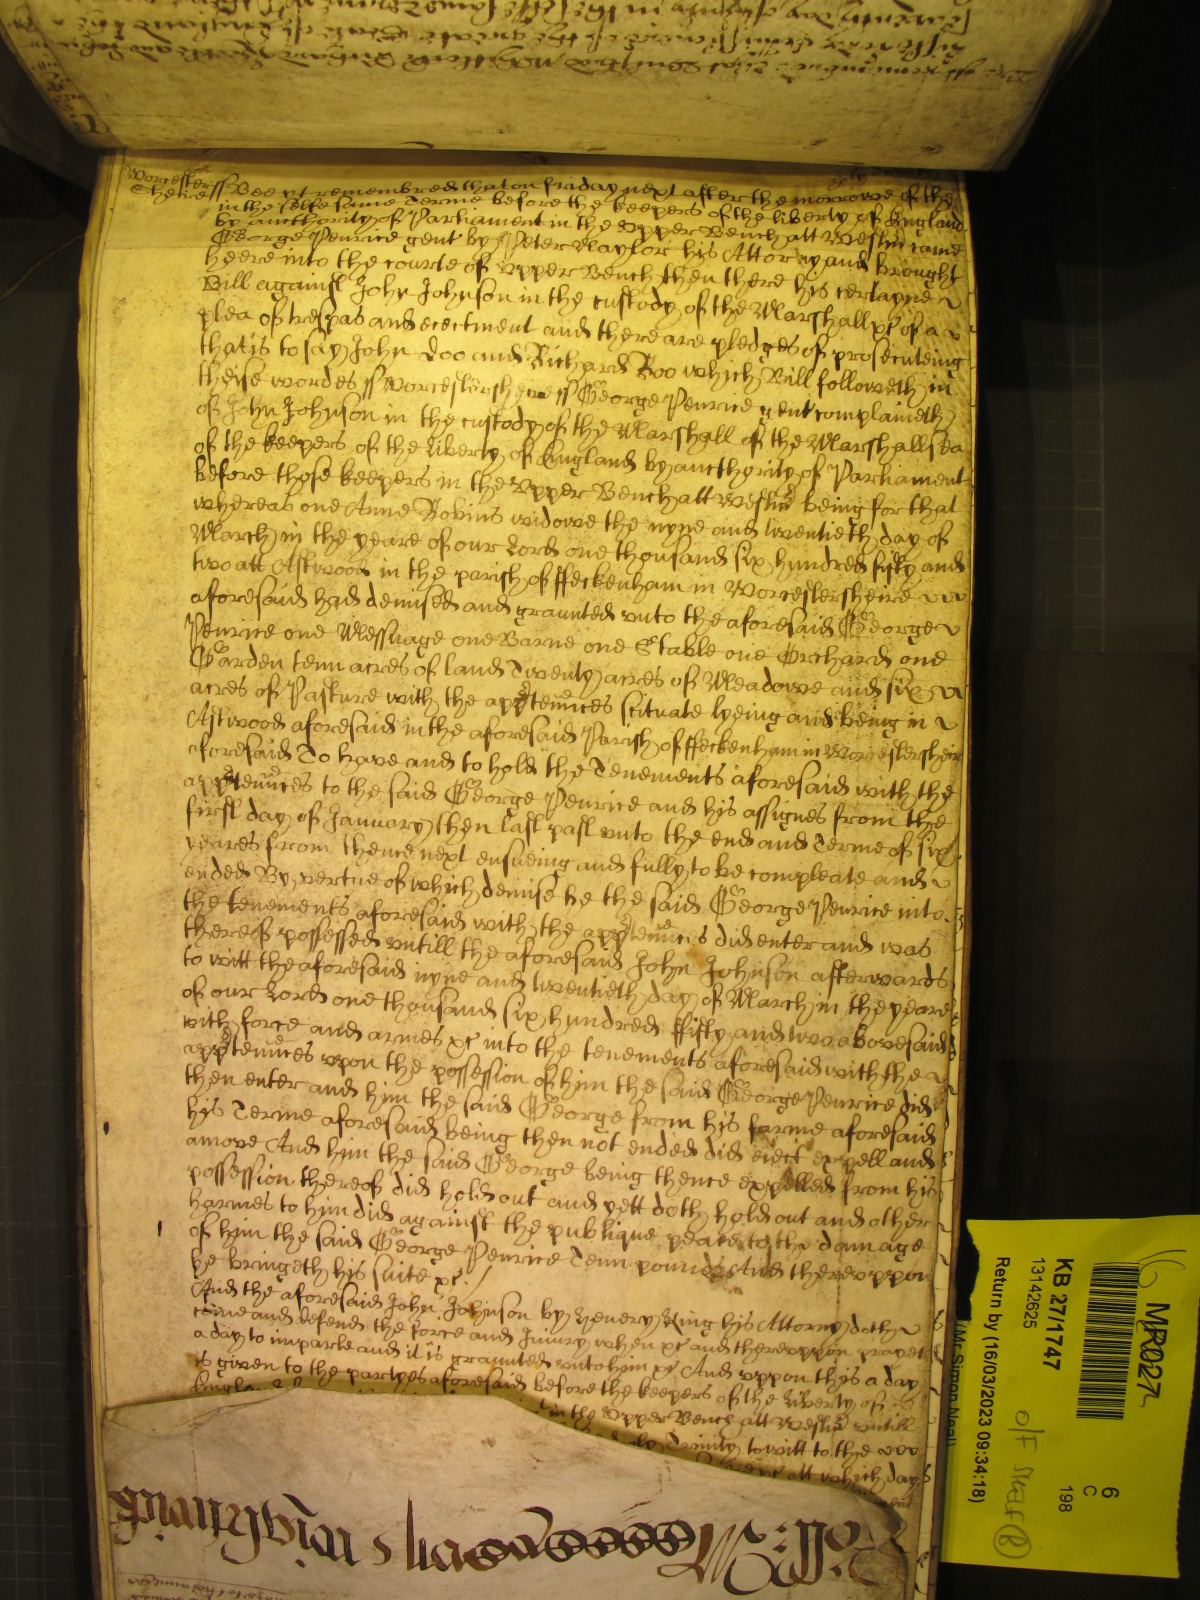 Worcester
sheire ss Bee yt remembred that on friday next after the morrowe of the
in the selfe same Terme before the keepers of the liberty of England
by aucthority of Parliament in the Upper Bench att Westm̃ came
George Penrice gent by Peter Maylor his Attorny and brought
heere into the courte of Upper Bench then there his certayne
Bill against John Johnson in the custody of the Marshall &c of a
plea of trespas and eiectment and there are pledges of prosecuteing
that is to say John Doo and Richard Roo which Bill followeth in
theise wordes ss Worcestersheire ss George Penrice gent complaineth
of John Johnson in the custody of the Marshall of the Marshallsea
of the keepers of the liberty of England by aucthority of Parliament
before those keepers in the Upper Bench att Westm̃ being for that
whereas one Anne Robins widowe the nyne and twentieth day of
March in the yeare of our Lord one thousand six hundred fifty and
two att Astwood in the parish of ffeckenham in Worcestersheire
aforesaid had demised and graunted unto the aforesaid George
Penrice one Messuage one Barne one Stable one Orchard one
Garden tenn acres of land Twenty acres of Meadowe and six
acres of Pasture with the apptennces scituate lyeing and being in
Astwood aforesaid in the aforesaid Parish of ffeckenham in Worcestersheire
aforesaid To have and to hold the Tenements aforesaid with the
apptennces to the said George Penrice and his assignes from the
first day of January then last past unto the end and Terme of six
yeares from thence next ensueing and fully to be compleate and
ended By vertue of which demise he the said George Penrice into
the tenements aforesaid with the apptennces did enter and was
thereof possessed untill the aforesaid John Johnson afterwards
to witt the aforesaid nyne and twentieth day of March in the yeare
of our Lord one thousand six hundred ffifty and two abovesaid
with force and armes &c into the tenements aforesaid with the
apptennces upon the possession of him the said George Penrice did
then enter and him the said George from his farme aforesaid
his Terme aforesaid being then not ended did eiect expell and
amove And him the said George being thence expelled from his
possession thereof did hold out and yett doth hold out and other
harmes to him did against the publique peace to the damage
of him the said George Penrice Tenn pounds And thereuppon
he bringeth his suite &c
And the aforesaid John Johnson by Henery King his Attorny doth
come and defend the force and Iniury when &c and thereuppon prayeth
a day to imparle and it is graunted unto him &c And uppon this a day
is given to the partyes aforesaid before the keepers of the liberty of
in the Upper Bench att Westm̃ untill
Trinity to witt to the
att which day
KB 27/1747
13142625
Return by (16/03/2023 09:34:18)
(Mr Simon Neal)
6
C
198